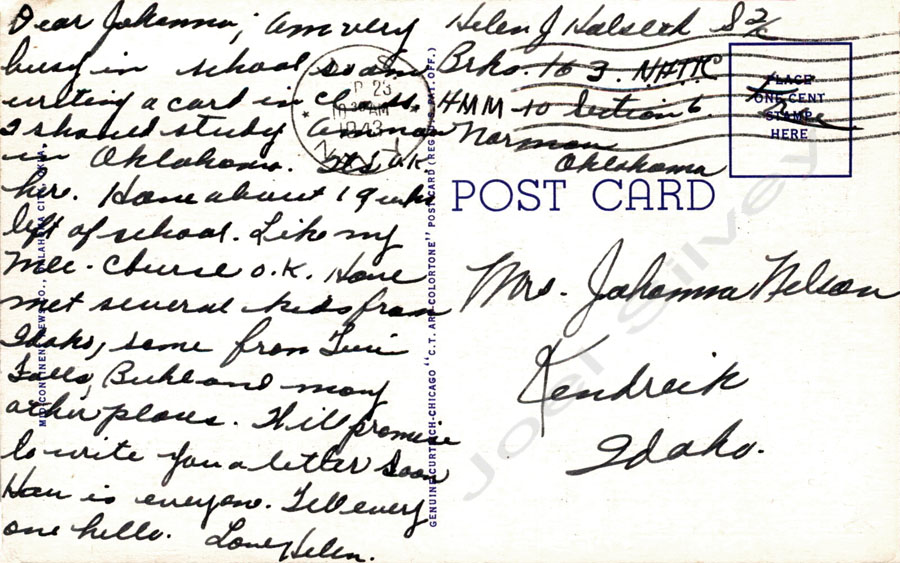 Dear Johanna; am very
busy in school so am
writing a card in class.
I should study Am now
in Oklahoma. It's O.K
here. Have about 19 wks
left of school. Like my
Mec. course O.K. Have
met several kids from
Idaho, some from Twin
Falls, Buhl and many
other places. Will promise
to write you a letter soon
How is everyone. Tell every
one hello. Love, Helen.
Helen J Halseth S 2/c
Brks. 163. NATTC
AMM-10 Section 6
Norman
Oklahoma
PLACE
ONE CENT
STAMP
HERE
Free
P 23
10 30 AM
1943
N. Y.
POST CARD
Mrs. Johanna Nelson
Kendrick
Idaho.
MID-CONTINENT NEWS CO., OKLAHOMA CITY, OKLA.
GENUINE CURTEICH-CHICAGO "C.T. ART-COLORTONE" POST CARD (REG. U.S. PAT. OFF.)
Joel Silvey